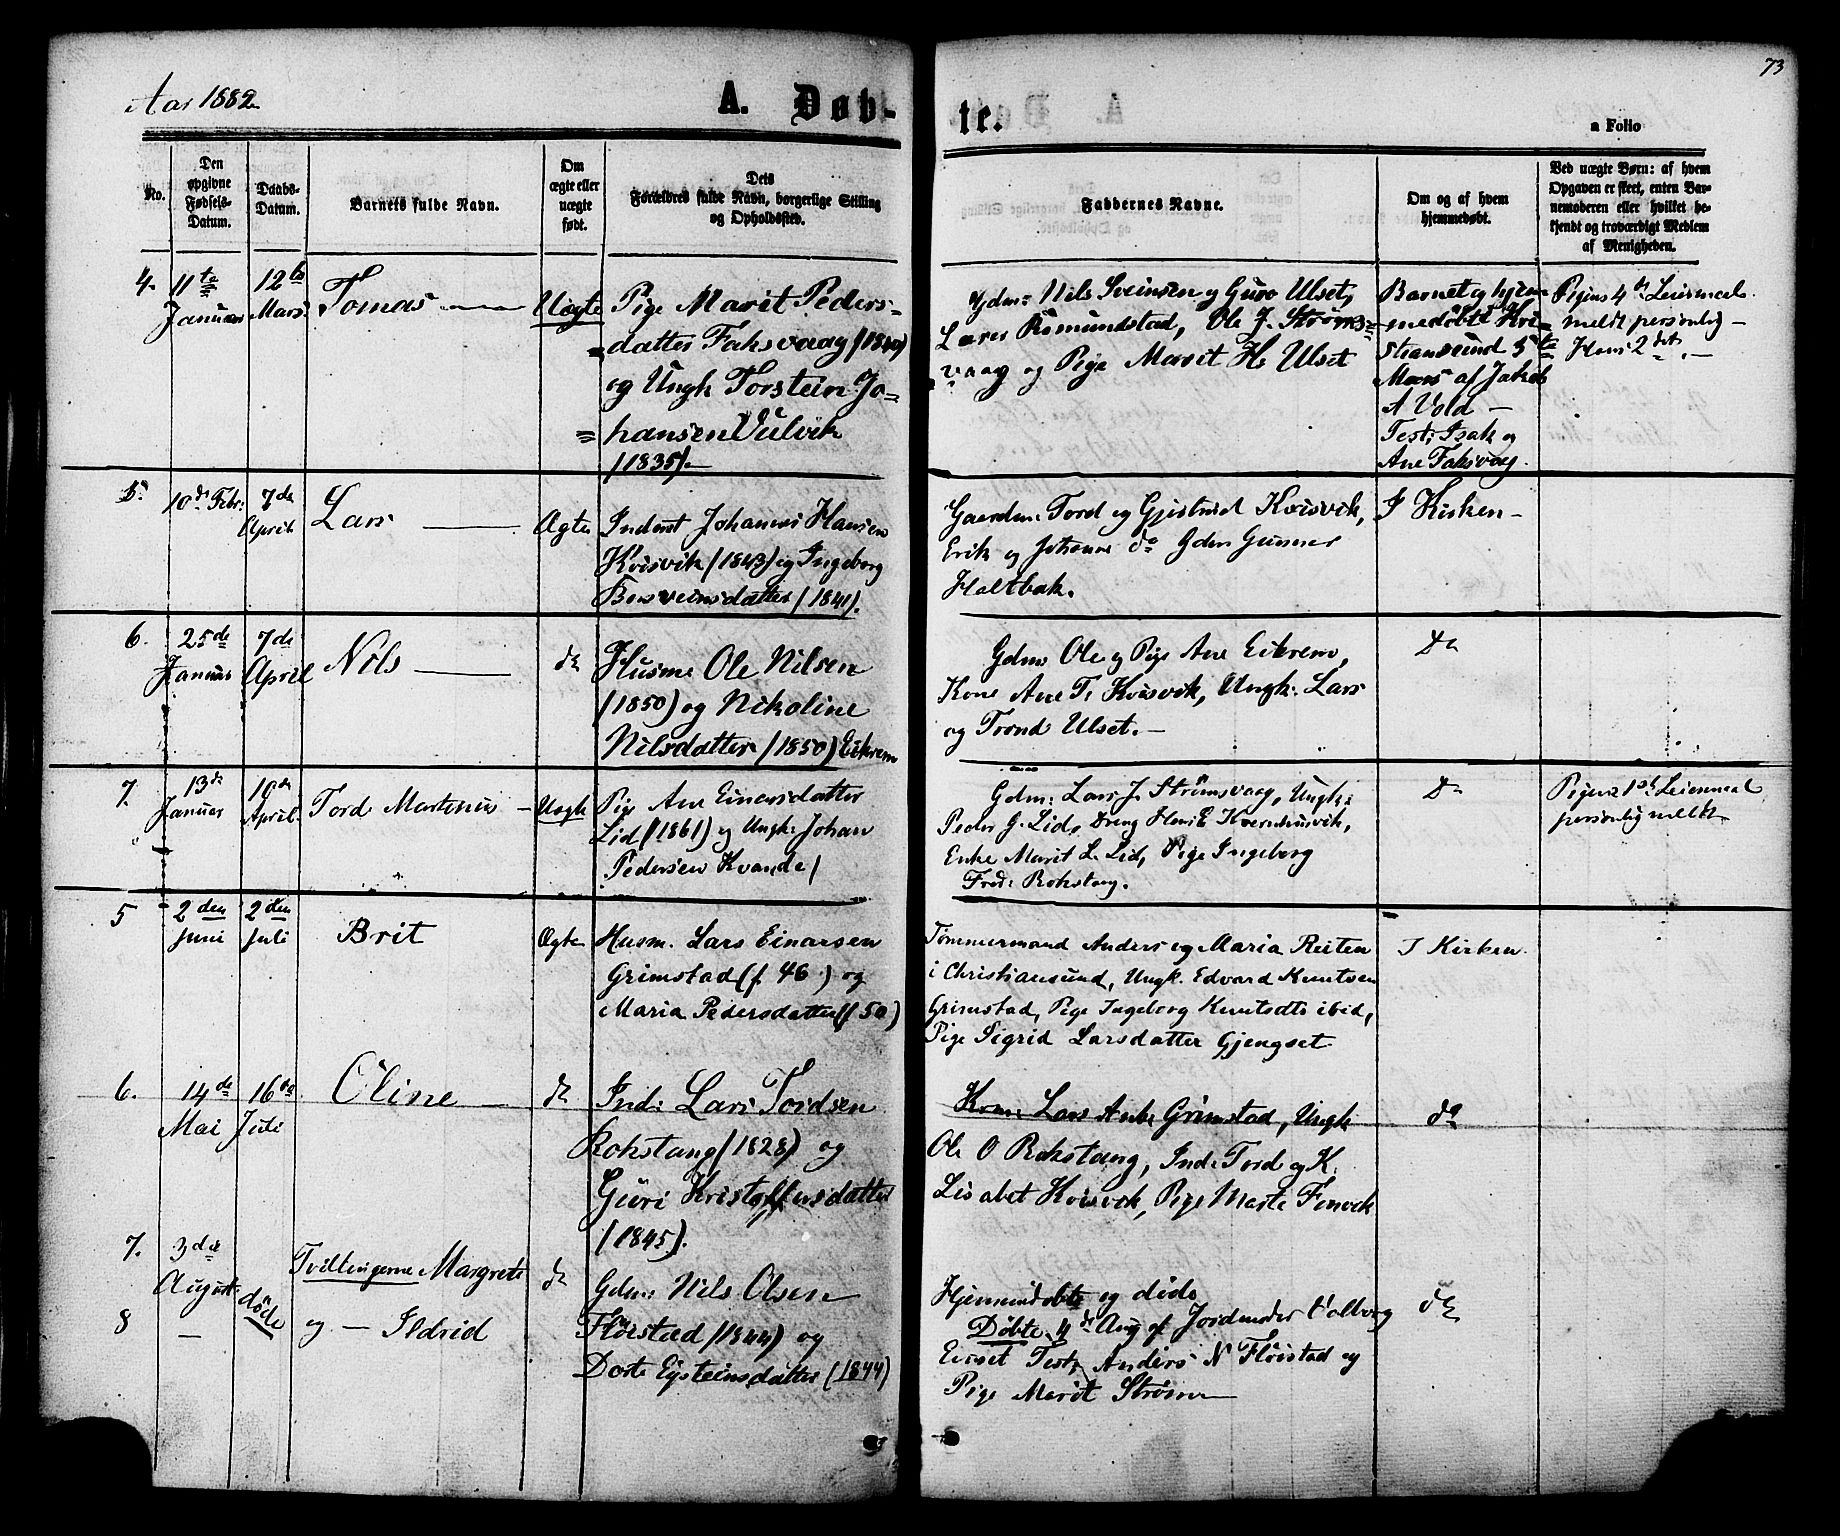 73
Aar 1882
A. Døb-
te.
a Folio
No.
Den
opgivne
Fødsels-
Datum.
Daabs-
Datum.
Barnets fulde Navn.
Om
ægte eller
uægte
født.
Dets
Forældres fulde Navn, borgerlige Stilling
og Opholdssted.
Faddernes Navne.
Om og af hvem
hjemmedøbt.
Ved uægte Børn: af hvem
Opgaven er skeet, enten Bar-
nemoderen eller hvilket be-
kjendt og troværdigt Medlem
af Menigheden.
4.
11te
Januar
12te
Mars
Tomas
Uægte
Pige Marit Peders-
datter Faksvaag (1840)
og Ungk Torstein Jo-
hansen Vulvik
(1835).
Gdm: Nils Sveinsen og Guro Ulset,
Lars Romundstad, Ole J. Strøms-
vaag og Pige Marit H. Ulset
Barnet og hjem-
medøbt Kri-
stiansund 5te
Mars af Jakob
A Vold -
Test: Isak og
Ane Faksvaag.
Pigens 4de Leiermaal
meldt personlig -
Hans 2det. -
5.
10de Febr:
7de
April
Lars
Ægte
Inderst Johannes Hansen
Kvisvik (1843) og Ingeborg
Besveinsdatter (1841).
Gaardm: Tord og Gjertrud Kvisvik,
Erik og Johanna do Gdm Gunner
Holtbak.
I Kirken -
6.
25de
Januar
7de
April
Nils
do
Husm Ole Nilsen
(1850) og Nikoline
Nilsdatter (1850) Eikrem
Gdm Ole og Pige Ane Eikrem,
Kone Ane T. Kvisvik, Ungk. Lars
og Trond Ulset. -
Do
7.
13de
Januar
10de
April.
Tord Martinus -
Uægte
Pige Ane Einarsdatter
Lid (1861) og Ungk: Johan
Pedersen Kvande /
Gdm: Lars J. Strømsvaag, Ungk:
Peder G. Lid, Dreng Henrik Kvernhusvik,
Enke Marit L. Lid, Pige Ingeborg
Fred: Rokstang.
Do
Pigens 1ste Leiermaal
personlig meldt
5
2den
Juni
2den
Juli
Brit
Ægte
Husm. Lars Einarsen
Grimstad (f. 46.) og
Maria Pedersdatter (f 50)
Tømmermand Anders og Maria Reiten
i Christiansund, Ungk. Edvard Knutsen
Grimstad, Pige Ingeborg Knutsdtr ibid,
Pige Sigrid Larsdatter Gjengset
I Kirken.
6.
14de
Mai
16de
Juli
Oline
do
Ind: Lars Tordsen
Rokstang (1828) og
Guri Kristoffersdatter
(1845).
Lars Grimstad, Ungk
Ole O Rokstang, Ind: Tord og K.
Lisabet Kvisvik, Pige Marte Fenvik
do
7.
3die
August
døde
Tvillingerne Margrete
do
Gdm: Nils Olsen
Fløistad (1844) og
Dorte Eysteinsdatter (1844)
8
-
og - Ildrid
Hjemmedøbte og døde
Døbte 4de Aug af Jordmoder Valborg
Test: Anders N Fløistad og
Pige Marit Strøm
do